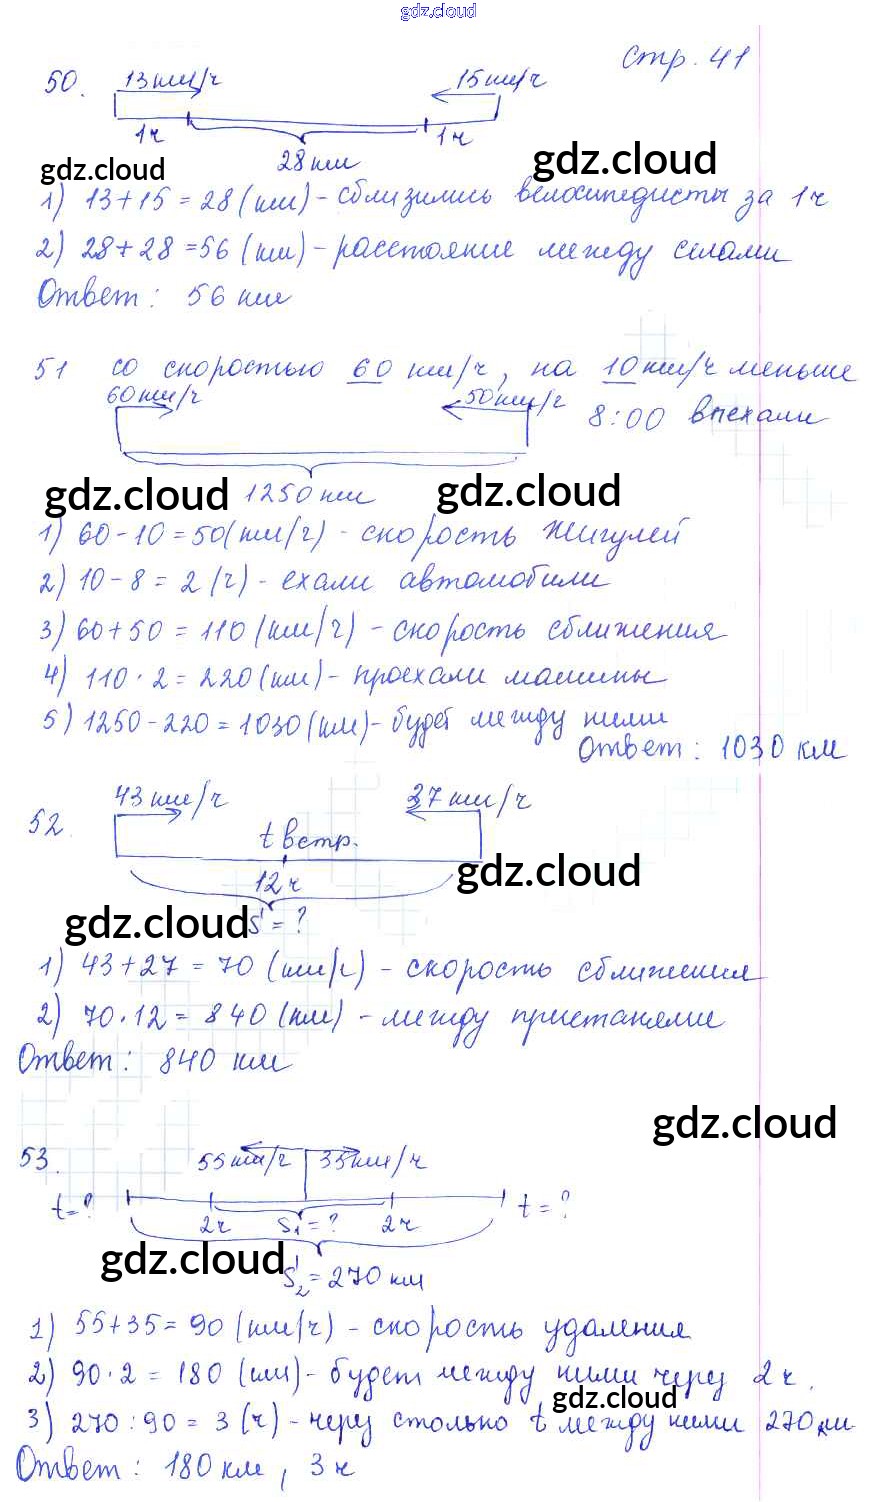 gdz.cloud
стр. 41
50. 13 км/ч 15 км/ч
1ч 28 км 1ч
gdz.cloud gdz.cloud
1) 13+15=28 (км) - сблизились велосипедисты за 1ч
2) 28+28=56 (км) - расстояние между селами
Ответ: 56 км
51 со скоростью 60 км/ч, на 10 км/ч меньше
60 км/ч 50 км/ч 8:00 выехали
gdz.cloud 1250 км gdz.cloud
1) 60-10=50(км/ч) - скорость Жигулей
2) 10-8=2 (ч) - ехали автомобили
3) 60+50=110 (км/ч) - скорость сближения
4) 110·2=220(км) - проехали машины
5) 1250-220=1030(км)- будет между ними
Ответ: 1030 км
52. 43 км/ч 37 км/ч
t встр.
12ч gdz.cloud
gdz.cloud S=?
1) 43+27=70 (км/ч) - скорость сближения
2) 70·12=840 (км) - между пристанями
Ответ: 840 км
gdz.cloud
53. 55 км/ч 35 км/ч
t=? 2ч S₁=? 2ч t=?
gdz.cloud S₂=270 км
1) 55+35=90 (км/ч) - скорость удаления
2) 90·2=180 (км) - будет между ними через 2ч.
gdz.cloud
3) 270:90=3 (ч) - через столько t между ними 270 км
Ответ: 180 км, 3ч